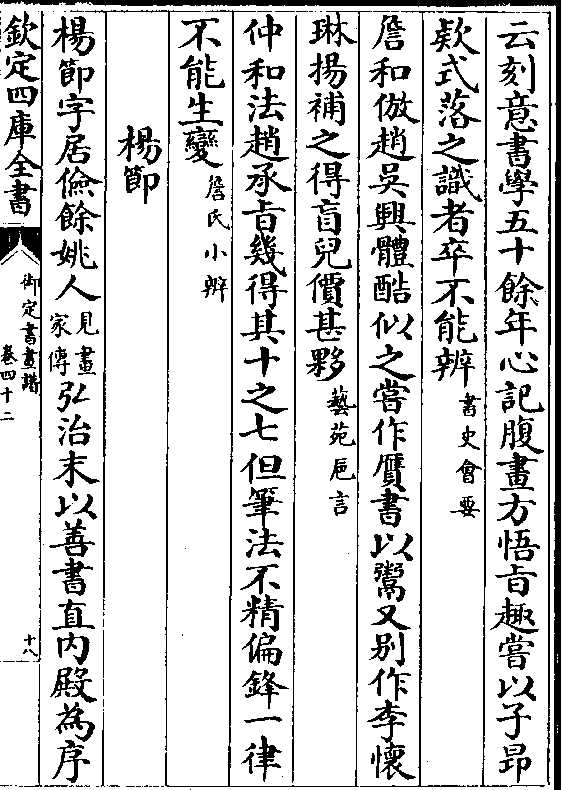 云刻意書學五十餘年心記腹畫方悟㫖趣嘗以子昂
欵式落之識者卒不能辨書史會要
詹和倣趙吳興體酷似之嘗作贋書以鬻又别作李懐
琳揚補之得盲兒價甚夥藝苑巵言
仲和法趙承㫖幾得其十之七但筆法不精偏鋒一律
不能生變詹氏小辨
楊節
楊節字居儉餘姚人見畫家傳弘治末以善書直内殿為序
欽定四庫全書
御定書畫譜
卷四十二
十八